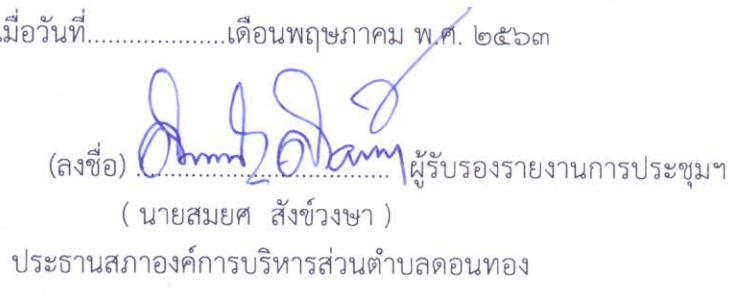 เมื่อวันที่....................เดือนพฤษภาคม พ.ศ. ๒๕๖๓
(ลงชื่อ) ....................................ผู้รับรองรายงานการประชุมฯ
( นายสมยศ สังข์วงษา )
ประธานสภาองค์การบริหารส่วนตำบลดอนทอง